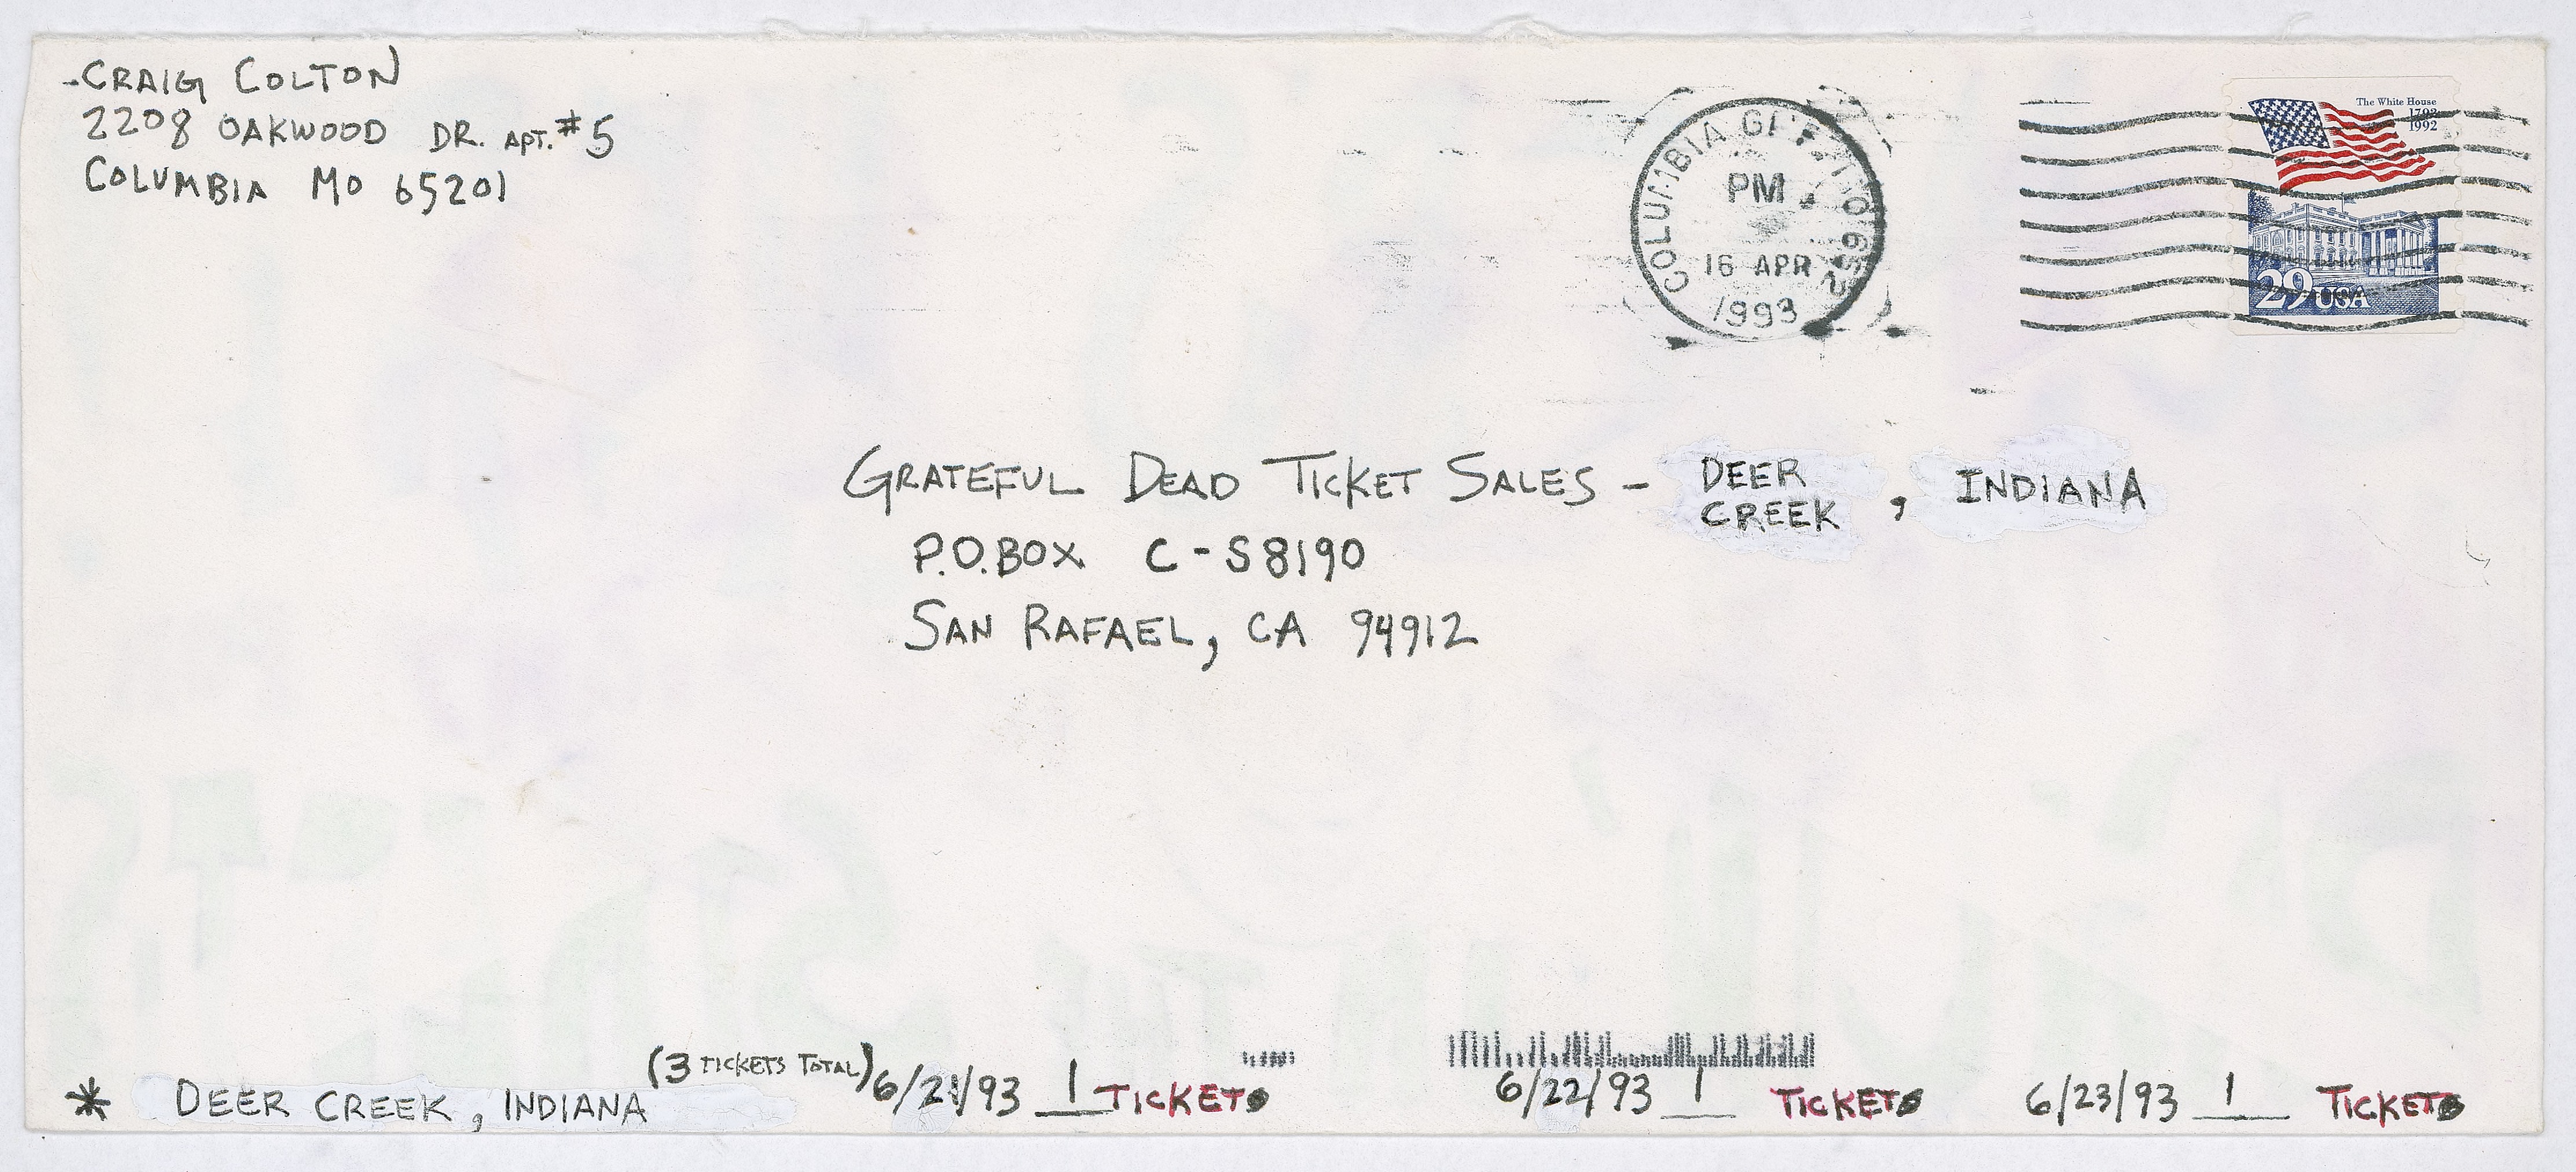 CRAIG COLTON
2208 OAKWOOD DR. APT. #5
COLUMBIA MO 65201
COLUMBIA
PM
16 APR
1993
652
The White House
1792
1992
29 USA
GRATEFUL DEAD TICKET SALES - DEER CREEK, INDIANA
P.O. BOX C-S8190
SAN RAFAEL, CA 94912
(3 TICKETS TOTAL)
* DEER CREEK, INDIANA 6/21/93 1 TICKET 6/22/93 1 TICKET 6/23/93 1 TICKET